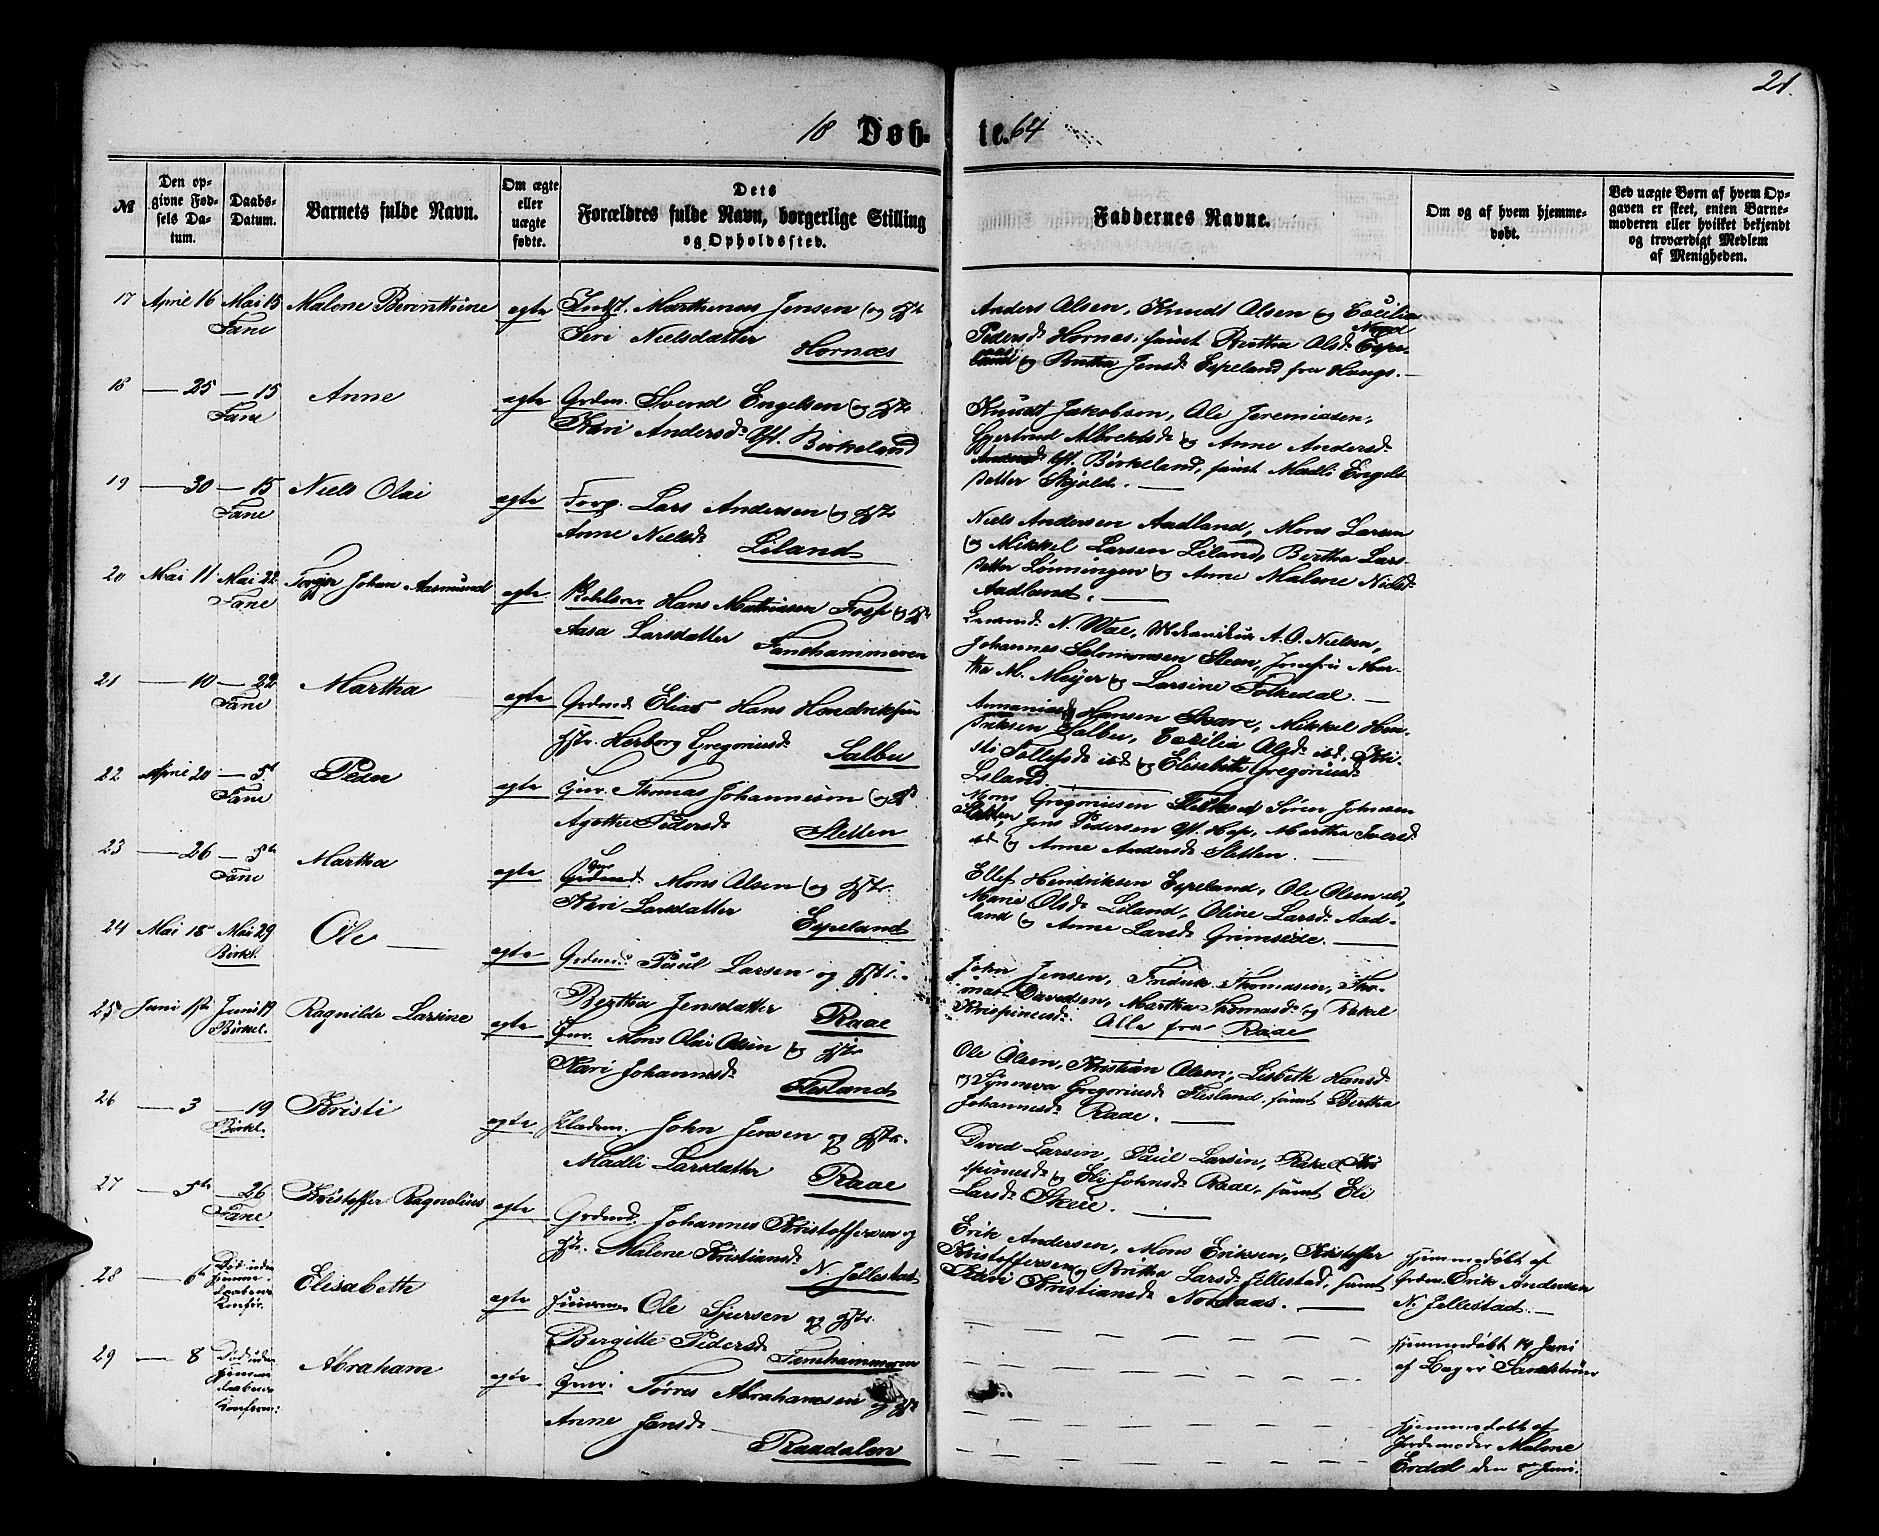 21.
18 Døb-
te. 64
№
Den op-
givne Fød-
sels Da-
tum.
Daabs-
Datum.
Barnets fulde Navn.
Om ægte
eller
uægte
fødte.
Dets
Forældres fulde Navn, borgerlige Stilling
og Opholdssted.
Faddernes Navne.
Om og af hvem hjemme-
døbt.
Ved uægte Børn af hvem Op-
gaven er skeet, enten Barne-
moderen eller hvilket bekjendt
og troværdigt Medlem
af Menigheden.
17 April 16 Mai 15 Malene Berenthine egte Indst. Marthinas Jensen og Hst
Fane
Siri Nielsdatter
Hornæs
Anders Olsen, Knudt Olsen og Cecilia
Pedersd. Hornæs, samt Bertha Olsd. Espe-
land og Bertha Jensd. Espeland fra Haugs.
18 — 25 — 15 Anne egte Grdm. Svend Engelsen og Hst.
Fane
Kari Andersd. Yt. Birkeland
Knudt Jakobsen, Ole Jeremiasen,
Gjertrud Albrektsd. og Anne Andersd.
Yt. Birkeland, samt Madli Engels
datter Skjold. —
19 — 30 — 15 Niels Olai egte Forp. Lars Andersen og Hst.
Fane
Anne Nielsd.
Liland
Niels Andersen Aadland, Mons Larsen
og Mikkel Larsen Liland, Bertha Lars-
datter Lønningen og Anne Malene Nielsd.
Aadland. —
20 Mai 11 Mai 22 Torger Johan Aasmund egte Hans Mathiesen Fosse og Hst
Fane
Aasa Larsdatter
Fanehammeren
N. Wae, Mekanikus A. O. Nielsen,
Johannes Salomonsen Steen, Jomfru Mar-
tha M. Meyer og Larsine Folkedal. —
21 — 10 — 22 Martha egte Grdmd. Elias Hans Hendriksen
Fane
Hst. Herborg Gregoriusd.
Salbu
Hansen Skare, Mikkel Hen-
driksen Salbu, Cecilia Olsd. ibd., Kri-
sti Tollefsd. ibd. og Elisabeth Gregoriusd.
Liland
22 April 20 — 5t Peder egte Gbr. Thomas Johannesen og Hst
Fane
Agathe Pedersd.
Sletten
Mons Gregoriussen Søren Johnsen
Sletten, Jens Pedersen Yt. Hop, Martha Iversd.
ibd. og Anne Andersd. Sletten. —
23 — 26 — 5te Martha egte Mons Olsen og Hst.
Fane
Kari Larsdatter
Espeland
Ellef Hendriksen Espeland, Ole Olsen ibd,
Marie Olsd. Liland, Oline Larsd. Aad-
land og Anne Larsd. Grimseide. —
24 Mai 15 Mai 29 Ole — egte Grdmd. Paul Larsen og Hst.
Birkl.
Bertha Jensdatter
Raae
John Jensen, Fredrik Thomasen, Tho-
mas Davidsen, Martha Thomasd. og Rakel
Krispinusd. Alle fra Raae
25 Juni 1ste Juni 19 Ragnilde Larsine egte Gbr. Mons Olai Olsen og Hst
Birkel.
Kari Johannesd.
Flesland
Ole Olsen, Kristian Olsen, Lisbeth Hansd.
og Synneva Gregoriusd. Flesland samt Bertha
Johannesd. Raae. —
26 — 3 — 19 Kristi egte Pladsm. John Jensen og Hst.
Birkl.
Madli Larsdatter
Raae
David Larsen, Paul Larsen, Rakel Kri
spinusd. og Eli Johnsd. Raae, samt Eli
Larsd. Skeie. —
27 — 5te — 26 Kristoffer Ragnelius egte Grdmd. Johannes Kristoffersen og
Fane
Hst. Malene Kristiansd.
N. Jellestad
Erik Andersen, Mons Eriksen, Kristoffer
Kristoffersen og Britha Larsd. Jellestad, samt
Kari Kristiansd. Nordaas. —
Hjemmedøbt af
Grbr. Erik Andersen
N. Jellestad. —
28 — 6t Død uden
hjemme-
daabens
Konfir.
Elisabeth egte Huusmd. Ole Sjursen og Hst.
Bergitte Pedersd.
Fanehammeren
Hjemmedøbt 19 Juni
af Sandstrøm
29 — 8 Død uden
hjemme
daabens
Konfirm.
Abraham egte Gbr. Tørres Abrahamsen og Hst
Anne Jonsd.
Raadalen
Hjemmedøbt af
Jordemoder Malene
Erdal den 8de Juni.